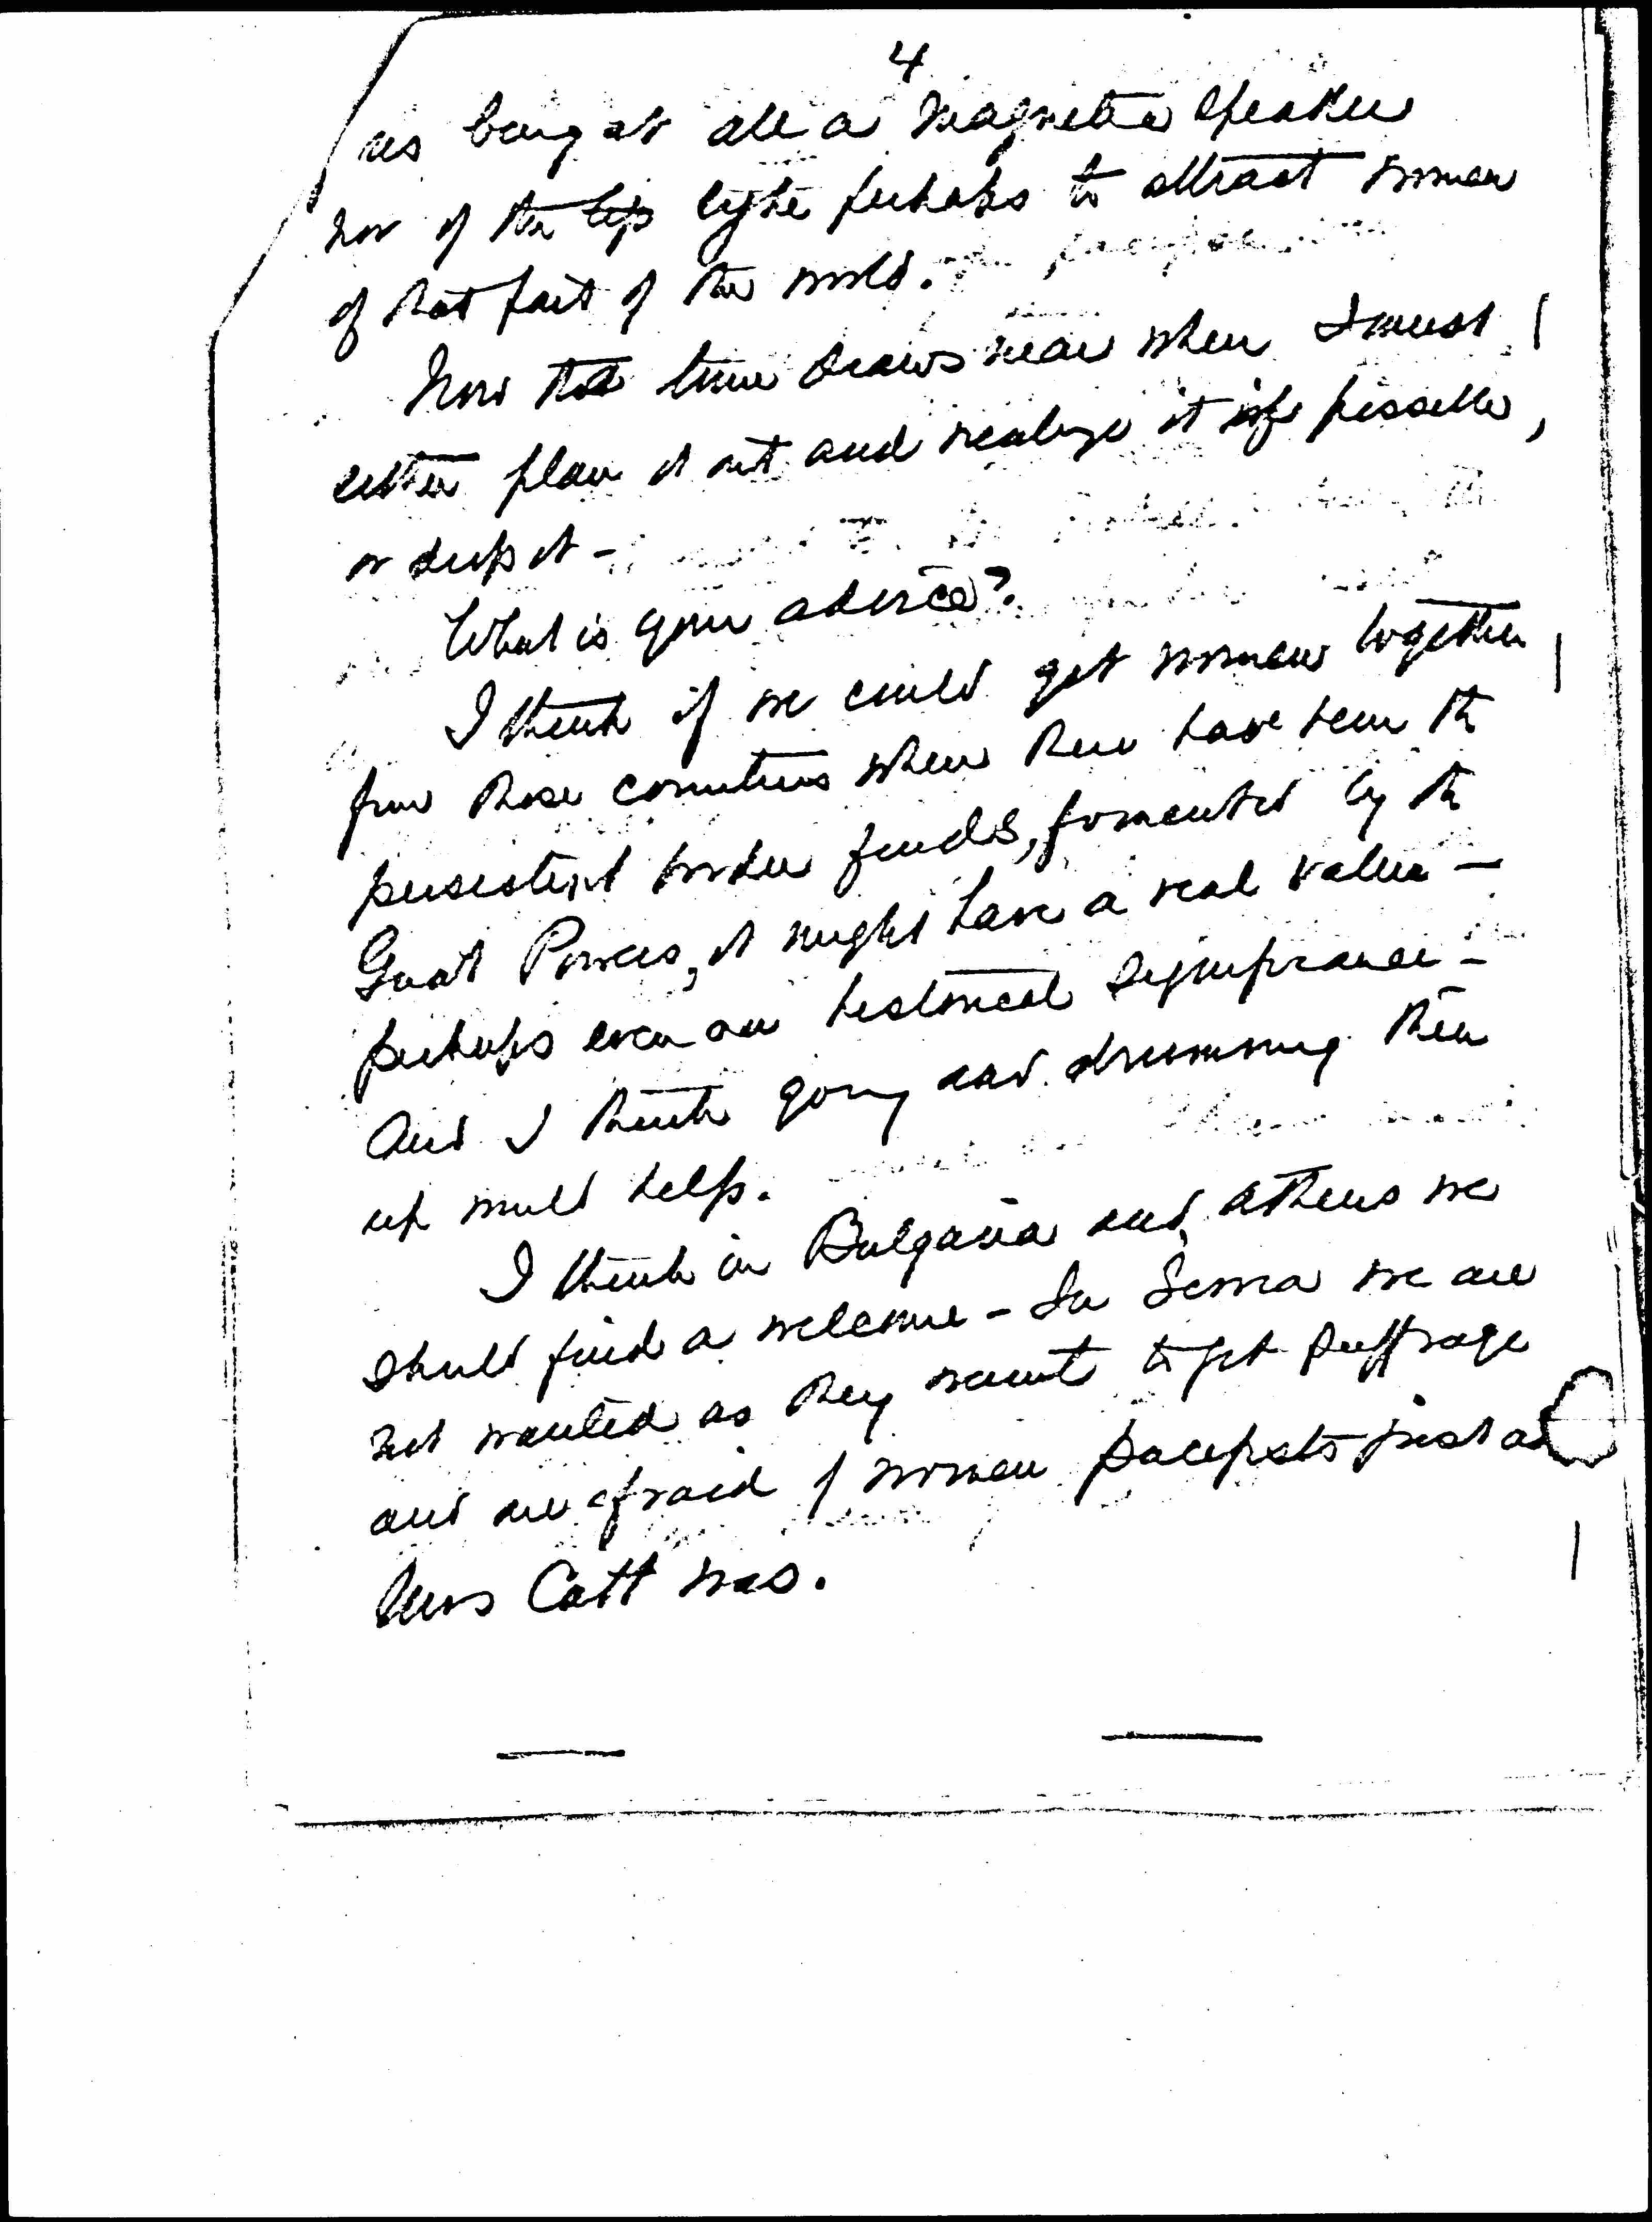 4
as being at all a magnetic speaker
nor of the type perhaps to attract women
of that part of the world.
Now the time draws near when I must
either plan it out and realize it if possible,
or drop it -
What is your advice?
I think if we could get women together
from those countries where there have been the
persistent border feuds, fomented by the
Great Powers, it might have a real value -
perhaps even an historical significance -
And I think going and drumming them
up would help.
I think in Bulgaria and Athens we
should find a welcome - In we are
not wanted as they want to get suffrage
and are afraid of women pacifists just as
Mrs Catt was.